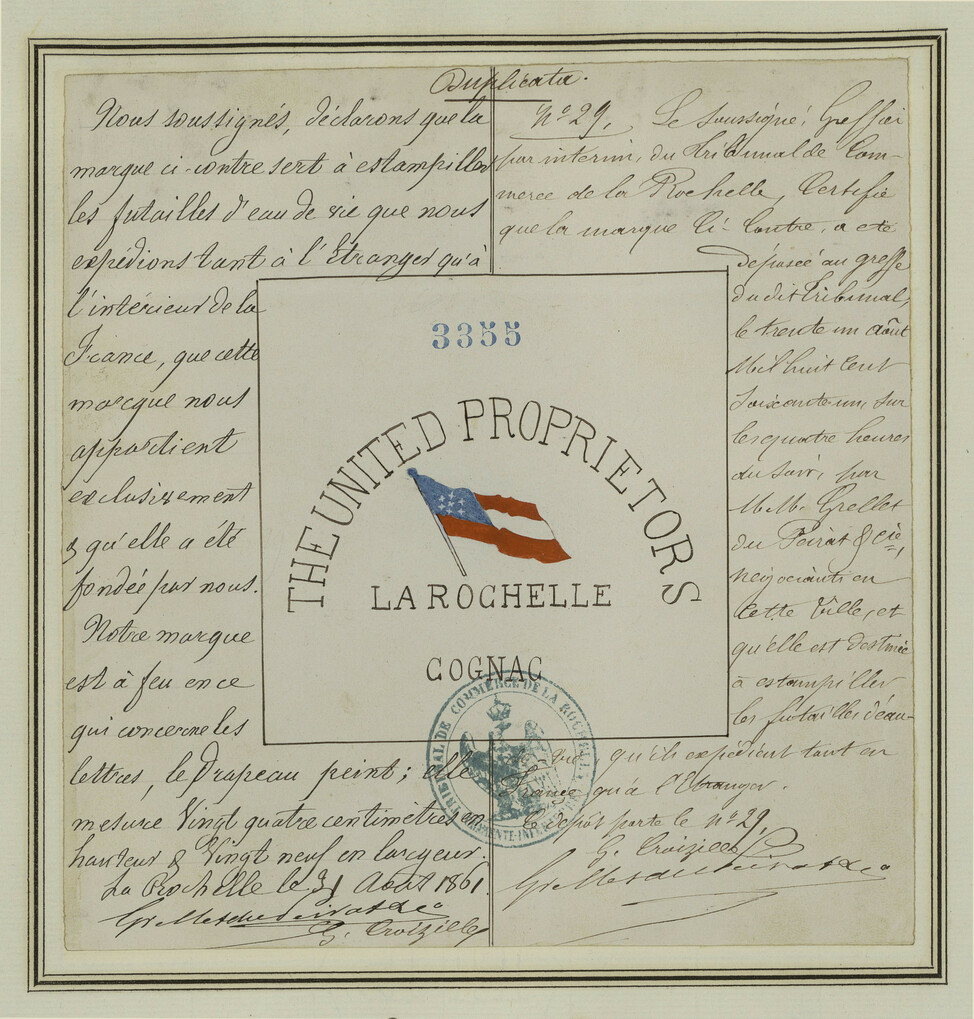 Duplicata.
Nous soussignés, déclarons que la
marque ci-contre sert à estampiller
les futailles d'eau de vie que nous
expédions tant à l'Etranger qu'à
l'intérieur de la
France, que cette
marque nous
appartient
exclusivement
& qu'elle a été
fondée par nous.
Notre marque
est à feu en ce
qui concerne les
lettres, le Drapeau peint; elle
mesure Vingt quatre centimètres en
hauteur & Vingt neuf en largeur.
La Rochelle le 31 Août 1861.
G. Croizille
No 29, Le Soussigné, Greffier
par interim, du tribunal de Com-
merce de la Rochelle, Certifie
que la marque Ci-Contre, a été
déposée au greffe
du dit tribunal,
le trente un août
Mil huit Cent
Soixante un, sur
les quatre heures
du Soir, par
M.M. Grellet
du Peirat & Cie,
négociants en
cette Ville, et
qu'elle est destinée
à estampiller
les futailles d'eau-
qu'ils expédient tant en
France, qu'à l'Etranger.
Le dépôt porte le No 29,
G. Croizille
3355
THE UNITED PROPRIETORS
LA ROCHELLE
COGNAC
TRIBUNAL DE COMMERCE DE LA ROCHELLE
CHARENTE-INFRE